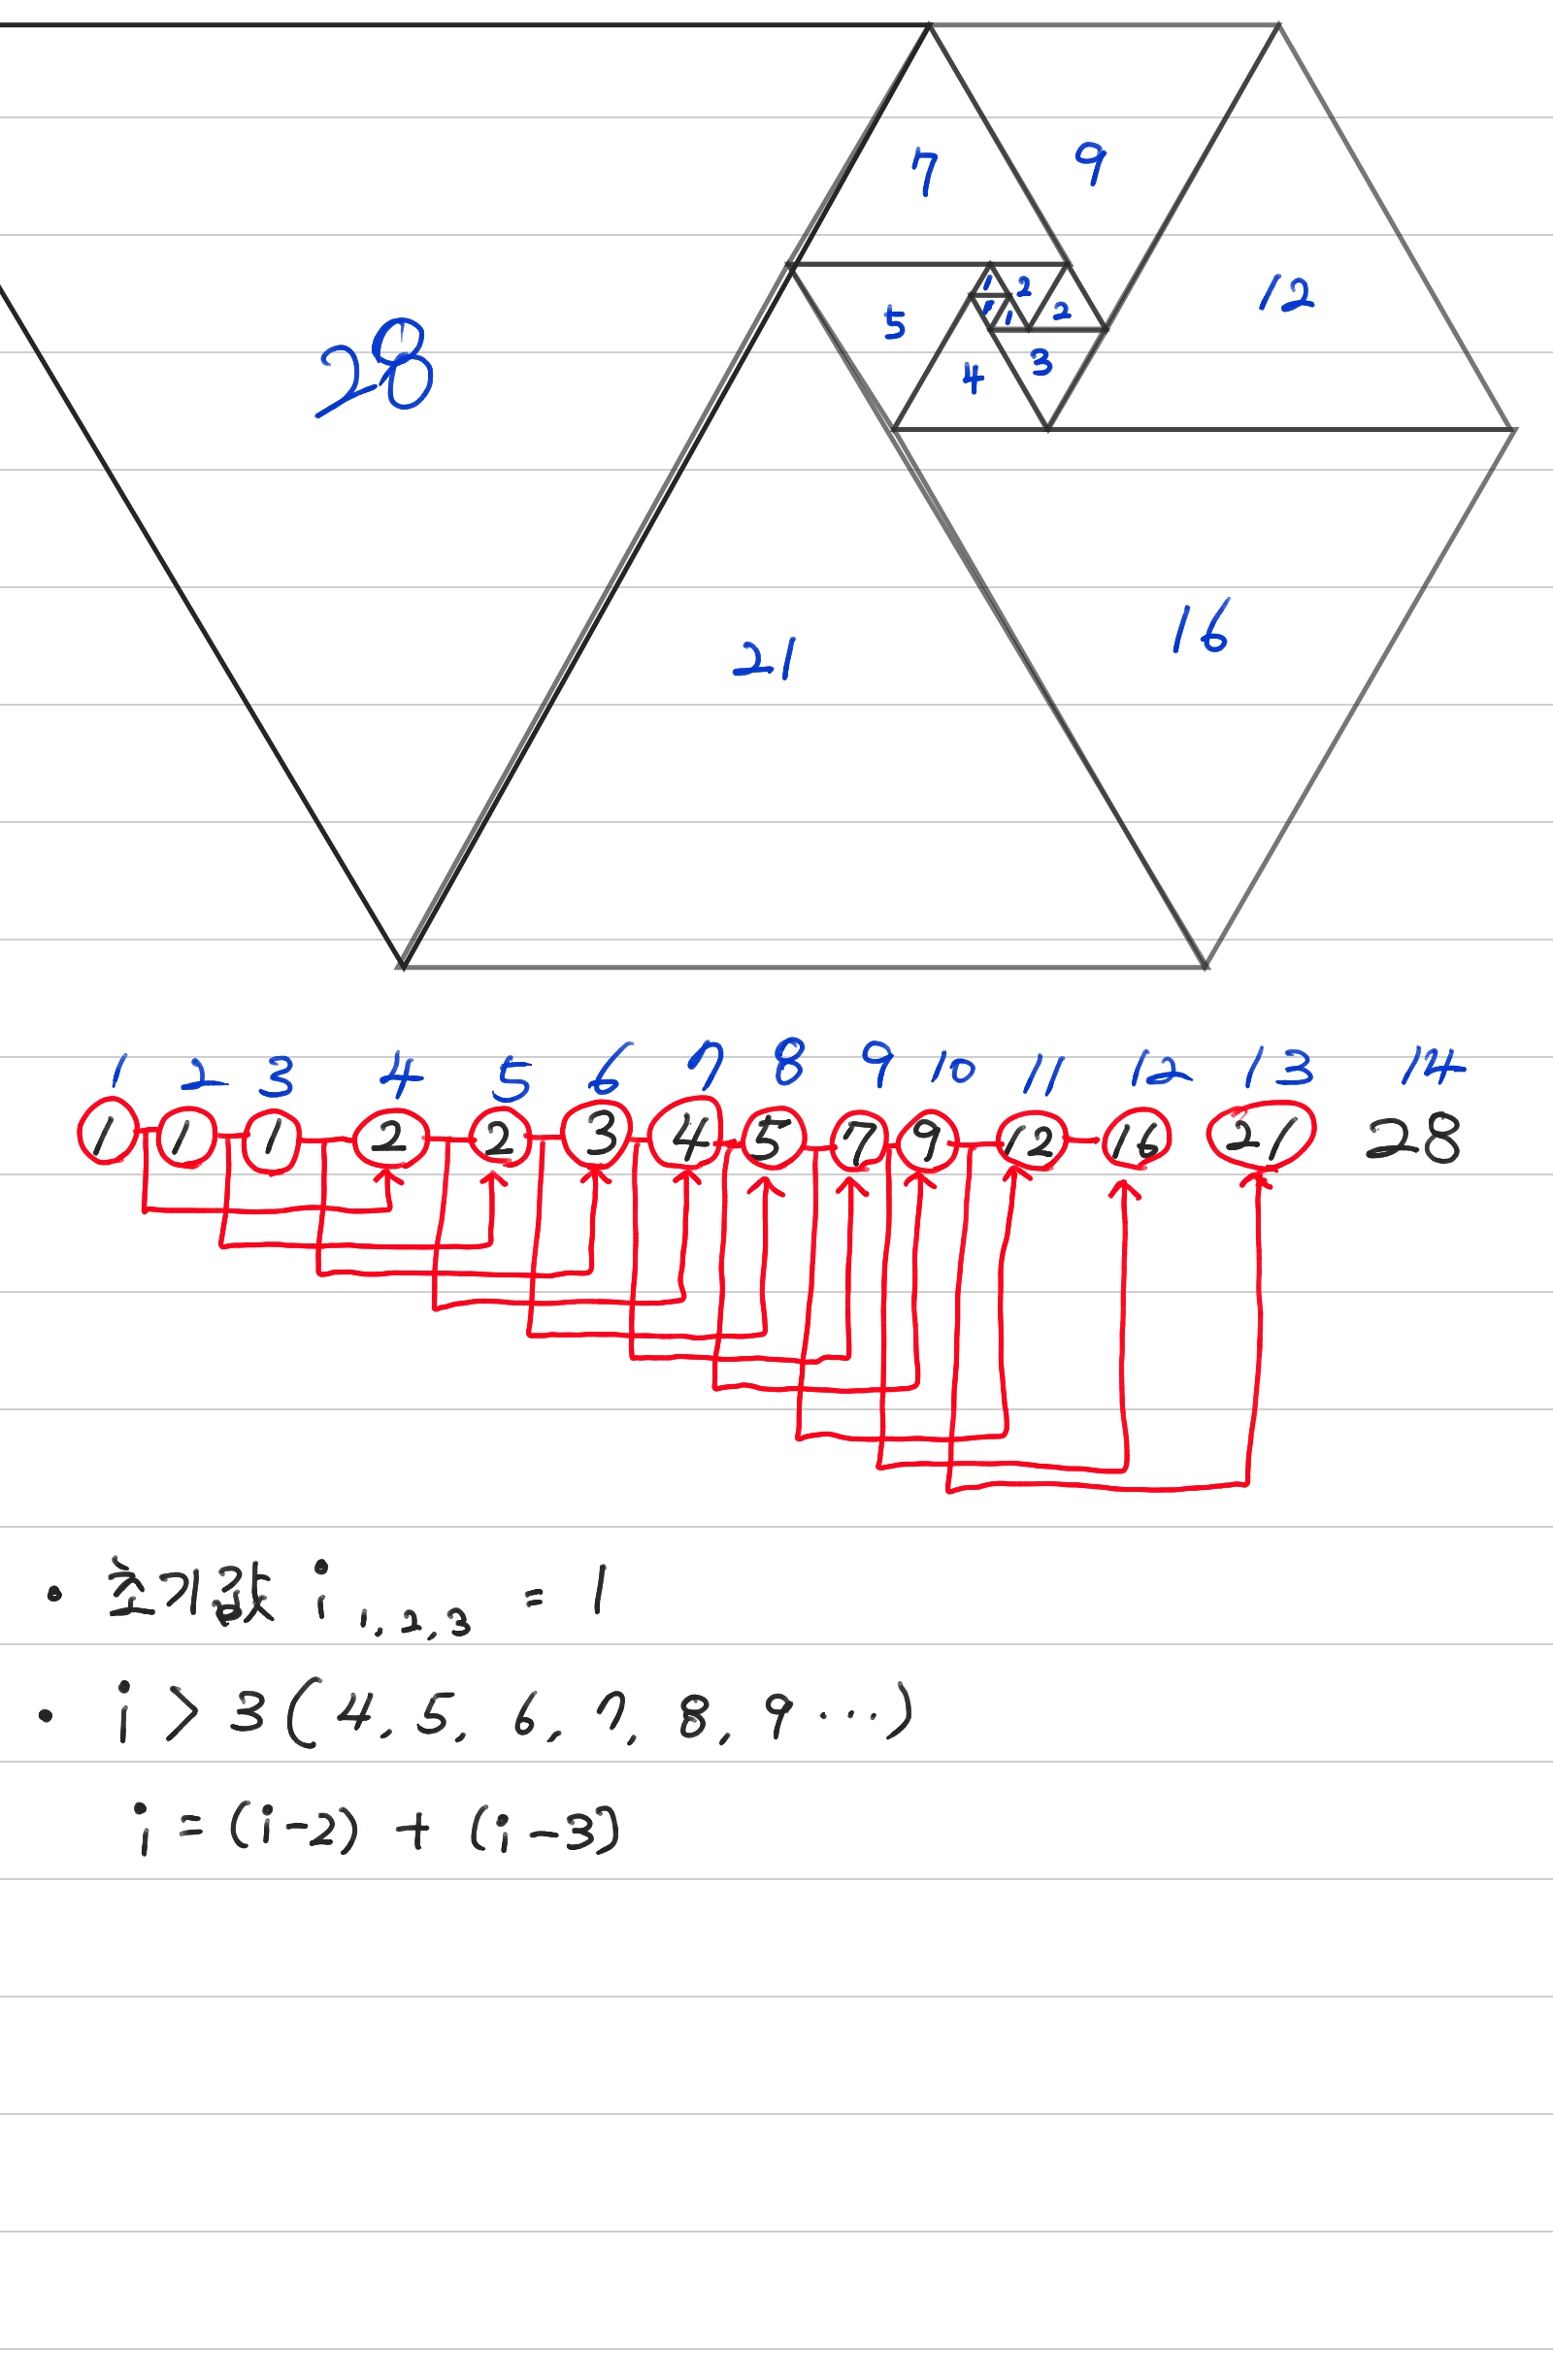 7 9
1 2
1 1 2
12
5
28
4 3
16
21
1 2 3 4 5 6 7 8 9 10 11 12 13 14
1 1 1 2 2 3 4 5 7 9 12 16 21 28
• 초기값 i 1,2,3 = 1
• i > 3 (4, 5, 6, 7, 8, 9 ...)
i = (i-2) + (i-3)